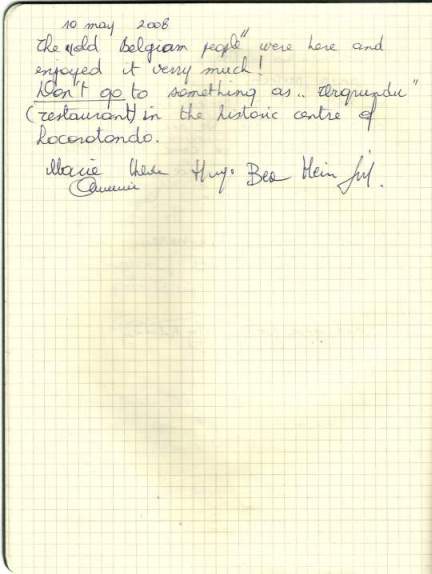 10 may 2008
The "old Belgian people" were here and
enjoyed it verry much!
Don't go to something as „
(restaurant) in the historic centre of
Locorotondo.
Marie Hugo Bea Hein